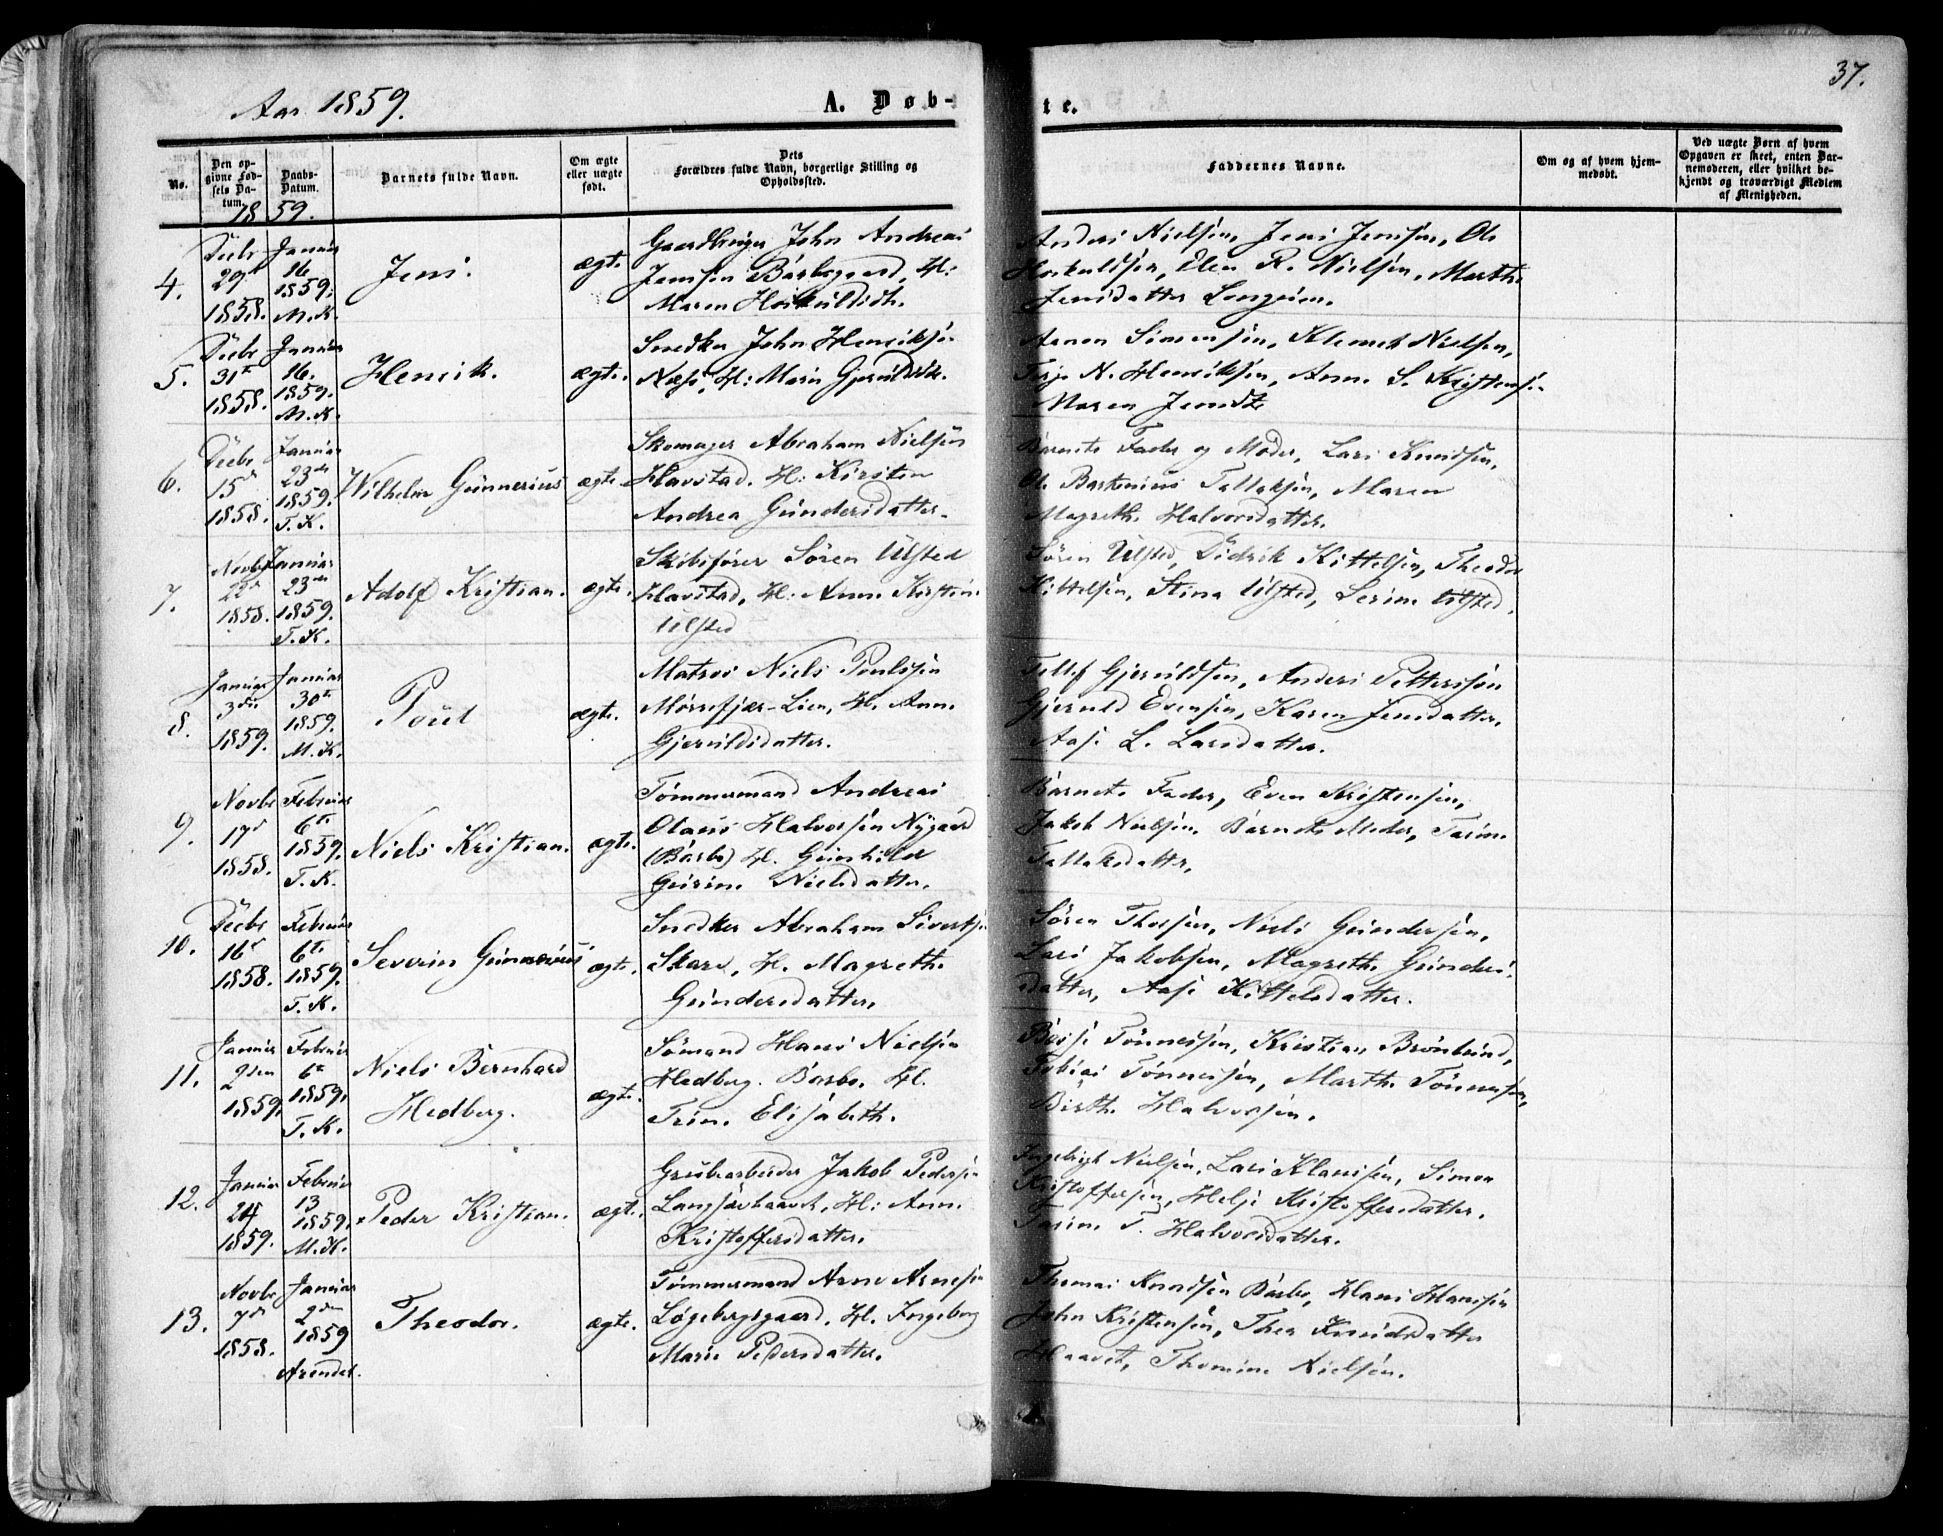 Aar 1859.
A. Døb-
te.
37.
No.
Den op-
givne Fød-
sels Da-
tum.
Daabs-
Datum.
Barnets fulde Navn.
Om ægte
eller uægte
født.
Dets
Forældres fulde Navn, borgerlige Stilling og
Opholdssted.
Faddernes Navne.
Om og af hvem hjem-
medøbt.
Ved uægte Børn af hvem
Opgaven er skeet, enten Bar-
nemoderen, eller hvilket be-
kjendt og troværdigt Medlem
af Menigheden.
1859.
4.
Decbr
29
1858.
Januar
16
1859.
M. K.
Jens.
ægte.
Gaardbruger John Andreas
Jensen Barbogaard, H:
Maren
Anders Nielsen, Jens Jensen, Ole
Elen R. Nielsen, Marthe
Jensdatter
5.
Decbr
31te
1858.
Januar
16.
1859.
M. K.
Henrik.
ægte.
Snedker John Henriksen
Næs, H: Maren
Simonsen, Klemet Nielsen,
Terje N. Henriksen, Anne S. Kristens
Maren Jensdt
6.
Decbr
15d
1858.
Januar
23de
1859.
T. K.
Wilhelm Gunnerius
ægte.
Skomager Abraham Nielsen
Havstad. H: Kirsten
Andrea Gundersdatter.
Barnets Fader og Moder, Lars Knudsen,
Ol. Tallaksen, Maren
Magrethe Halvorsdatter.
7.
Novbr
22d
1858.
Januar
23de
1859.
T. K.
Adolf Kristian.
ægte.
Skibsfører Søren Ulsted
Havstad, H: Anne Kirstine
Ulsted
Søren Ulsted, Didrik Kittelsen, Theodor
Kittelsen, Stina Ulsted, Serine Ulsted.
8.
Januar
3die
1859.
Januar
30te
1859.
M. K.
Poul
ægte.
Matros Niels Poulssen
Mørrefjær-Lien, H. Anne
Gjeruldsdatter.
Tellef Gjeruldsen, Anders Pettersøn
Gjeruld Evensen, Karen Jensdatter,
Aase L. Larsdatter.
9.
Novbr
17d
1858.
Februar
6te
1859.
T. K.
Niels Kristian.
ægte.
Tømmermand Andreas
Olaus Halvorsen Nygaard
(Barbo) H. Gunhild
Gurine Nielsdatter.
Barnets Fader, Even Kristensen,
Jakob Nielsen, Barnets Moder, Tarine
Tallaksdatter.
10.
Decbr
16d
1858.
Februar
6te
1859.
T. K.
Severin Gunnerius
ægte.
Snedker Abraham Sivertsen
Skare, H. Magrethe
Gundersdatter.
Søren Thorsen, Niels Gundersen,
Lars Jakobsen, Magrethe Gunders-
datter, Aase Kittelsdatter.
11.
Januar
2den
1859.
Februar
6te
1859.
T. K.
Niels Bernhard
Hedberg.
ægte.
Sømand Hans Nielsen
Hedberg. Barbo. H.
Trine Elisabeth.
Tønnessen, Kristian Brønlund,
Tobias Tønnessen, Marthe Tønnessen,
Birthe Halvorsen.
12.
Januar
24
1859.
Februar
13
1859.
M. K.
Peder Kristian.
ægte.
Grubearbeider Jakob Pedersen
Langsævhaavet, H: Anne
Kristoffersdatter.
Ingebrigt Nielsen, Lars Klausen, Simon
Kristoffersen, Helje Kristoffersdatter.
Tarine T. Halvorsdatter.
13.
Novbr
7de
1858.
Januar
2den
1859
Arendal.
Theodor.
ægte.
Tømmermand Arne Arnesen
Løgebergsgaard, H. Ingeborg
Marie Pedersdatter.
Thomas Knudsen Barbo, Hans Hansen
John Kristensen, Thea Knudsdatter
Haavet, Thomine Nielsen.